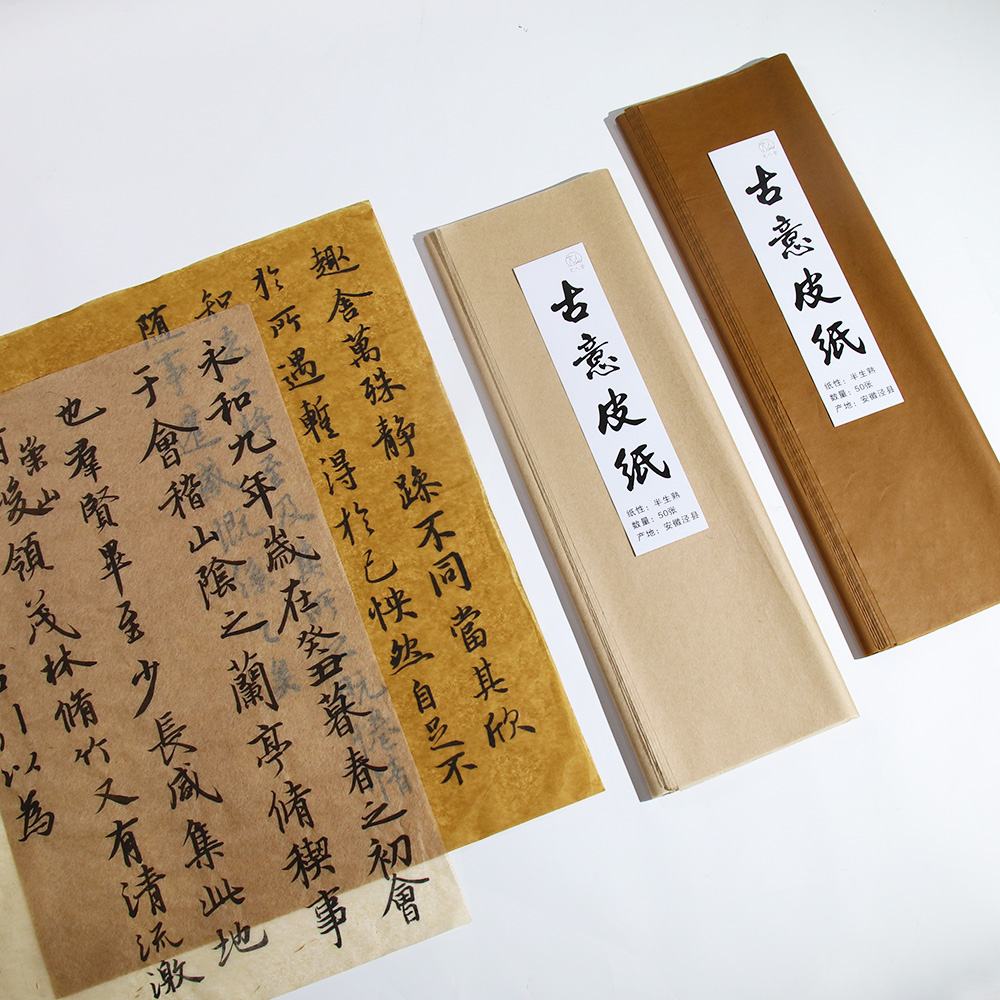 趣舍萬殊靜躁不同當其欣
於所遇暫得於己怏然自足不
知老將至及其所之既惓情
隨事遷感慨係之矣
永和九年歲在癸丑暮春之初會
于會稽山陰之蘭亭脩稧事
也羣賢畢至少長咸集此地
崇山
有峻領茂林脩竹又有清流激
引以為
古意皮纸
纸性：半生熟
数量：50张
产地：安徽泾县
古意皮纸
纸性：半生熟
数量：50张
产地：安徽泾县